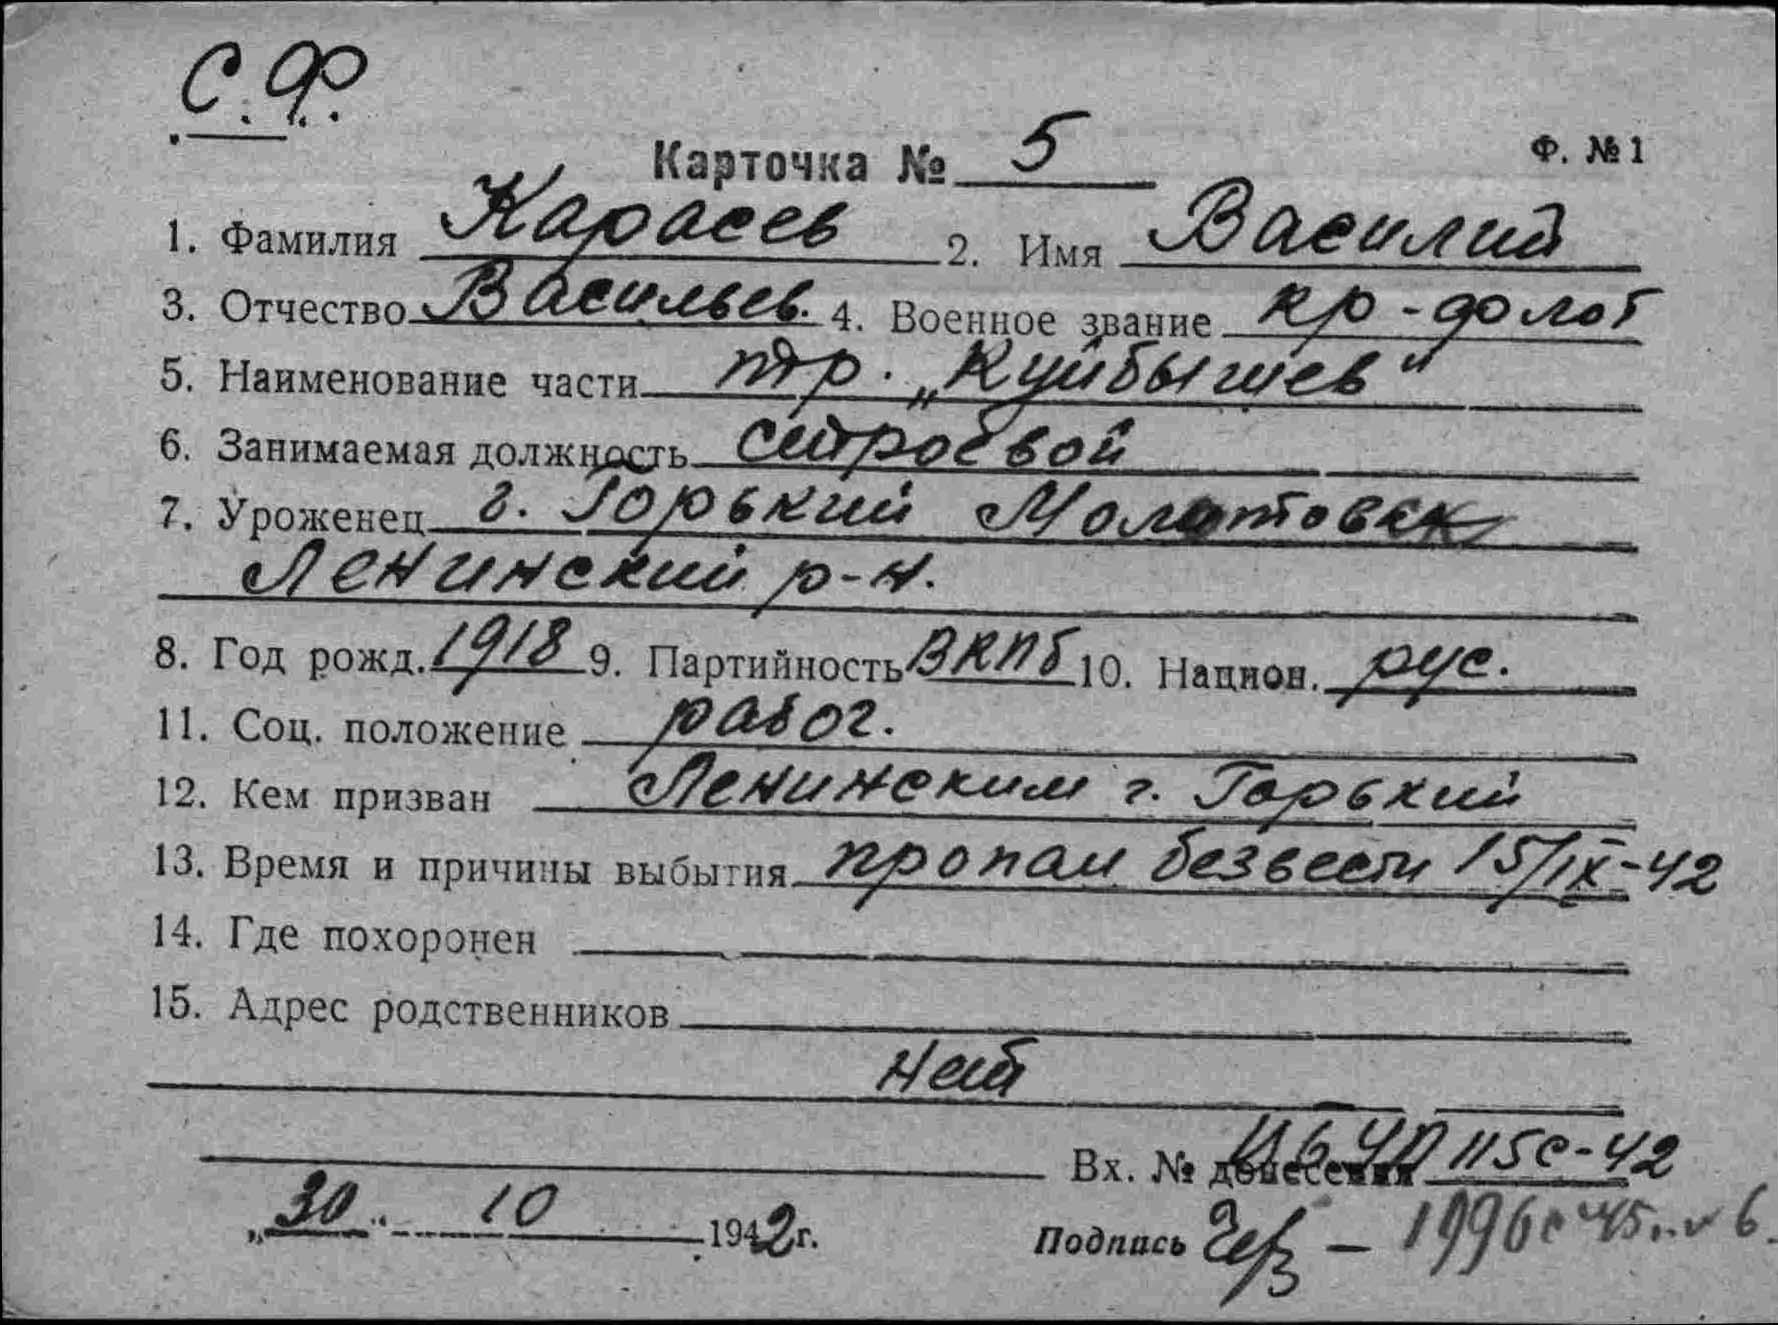 С.Ф.
Карточка № 5 Ф. № 1
1. Фамилия Карасев 2. Имя Василий
3. Отчество Васильев. 4. Военное звание кр-фолот
5. Наименование части тр. „Куйбышев"
6. Занимаемая должность строевой
7. Уроженец г. Горький Молотовск
Ленинский р-н.
8. Год рожд. 1918 9. Партийность ВКПб 10. Национ. рус.
11. Соц. положение рабоч.
12. Кем призван Ленинским г. Горький
13. Время и причины выбытия пропал безвести 15/IX-42
14. Где похоронен
15. Адрес родственников
нет
Вх. № донесения 115с-42
„30" 10 1942 г.
Подпись — 1996с 45